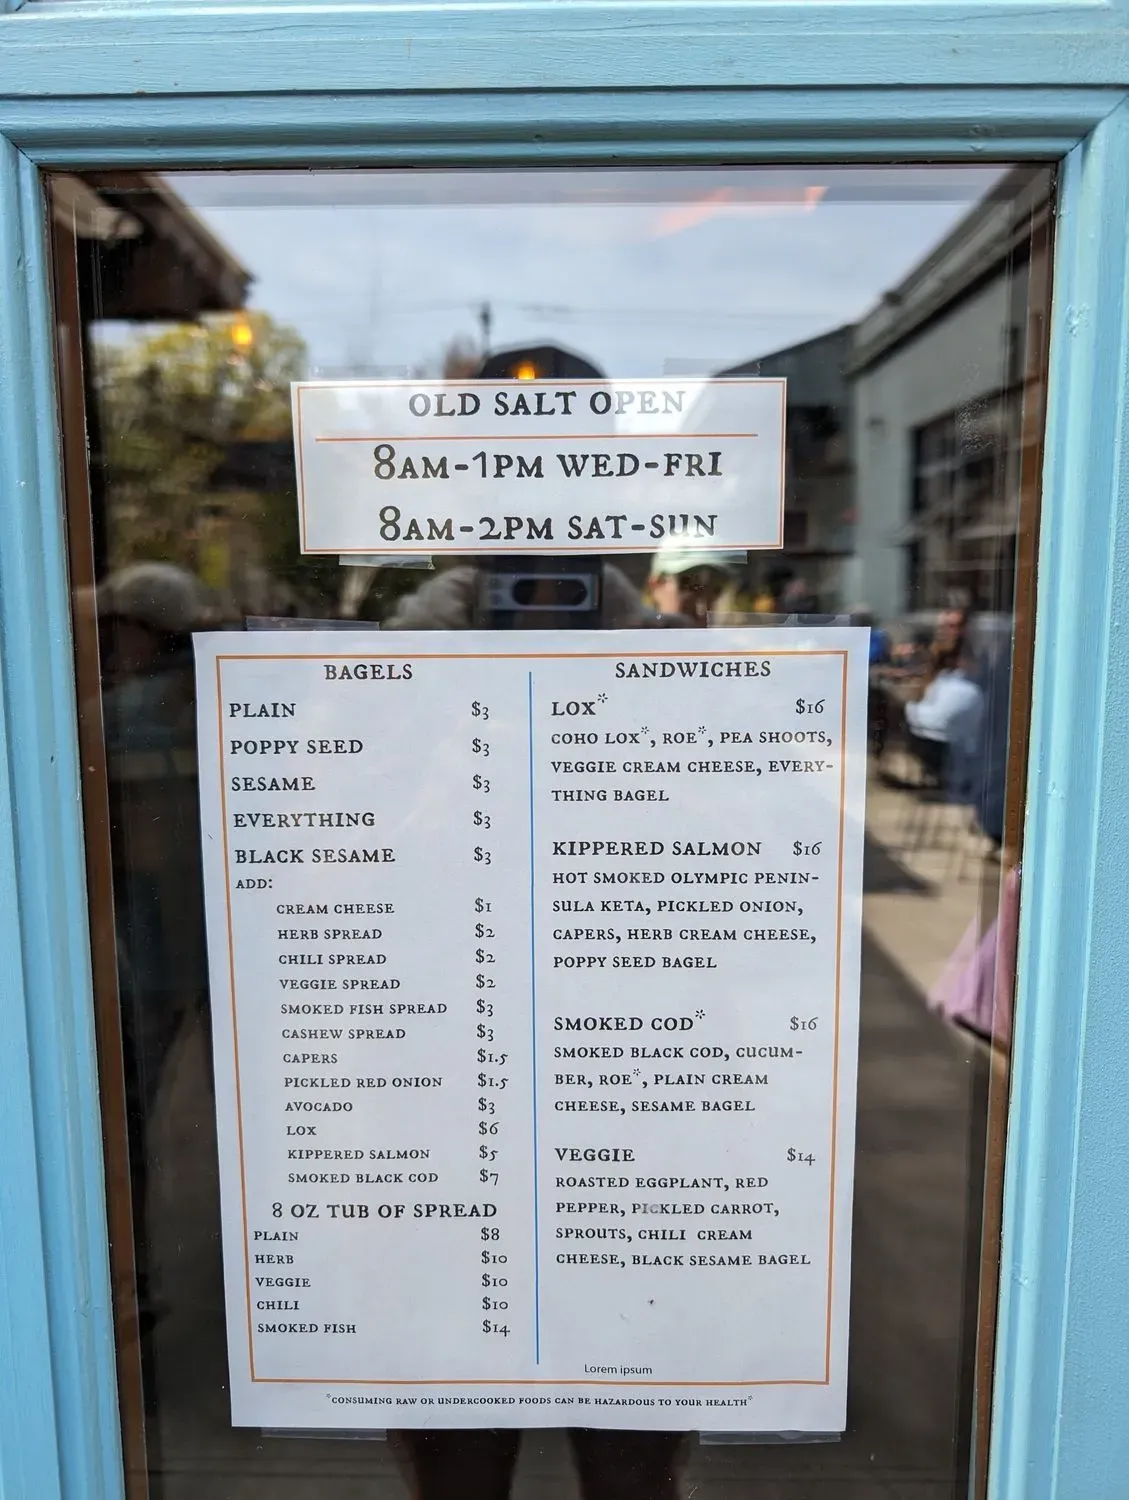 OLD SALT OPEN
8AM-1PM WED-FRI
8AM-2PM SAT-SUN
BAGELS
PLAIN $3
POPPY SEED $3
SESAME $3
EVERYTHING $3
BLACK SESAME $3
ADD:
CREAM CHEESE $1
HERB SPREAD $2
CHILI SPREAD $2
VEGGIE SPREAD $2
SMOKED FISH SPREAD $3
CASHEW SPREAD $3
CAPERS $1.5
PICKLED RED ONION $1.5
AVOCADO $3
LOX $6
KIPPERED SALMON $5
SMOKED BLACK COD $7
8 OZ TUB OF SPREAD
PLAIN $8
HERB $10
VEGGIE $10
CHILI $10
SMOKED FISH $14
SANDWICHES
LOX* $16
COHO LOX*, ROE*, PEA SHOOTS,
VEGGIE CREAM CHEESE, EVERY-
THING BAGEL
KIPPERED SALMON $16
HOT SMOKED OLYMPIC PENIN-
SULA KETA, PICKLED ONION,
CAPERS, HERB CREAM CHEESE,
POPPY SEED BAGEL
SMOKED COD* $16
SMOKED BLACK COD, CUCUM-
BER, ROE*, PLAIN CREAM
CHEESE, SESAME BAGEL
VEGGIE $14
ROASTED EGGPLANT, RED
PEPPER, PICKLED CARROT,
SPROUTS, CHILI CREAM
CHEESE, BLACK SESAME BAGEL
Lorem ipsum
*CONSUMING RAW OR UNDERCOOKED FOODS CAN BE HAZARDOUS TO YOUR HEALTH*